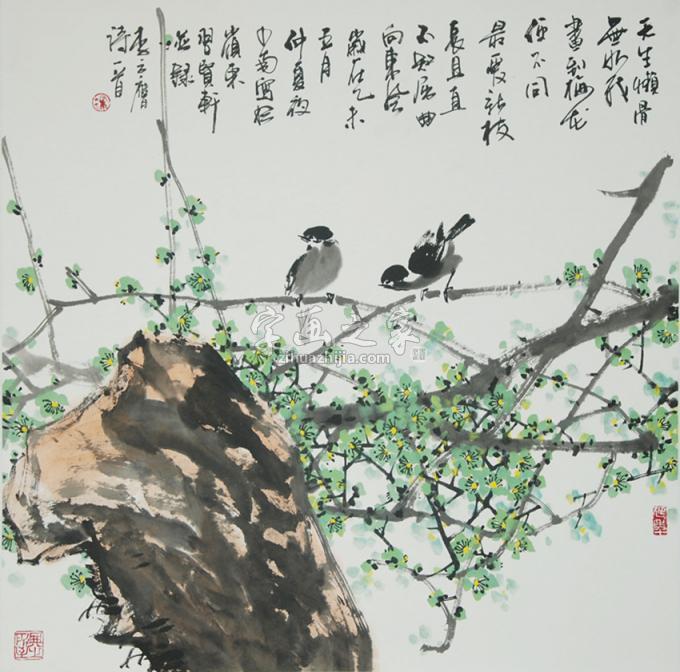 天生懶骨
無如我
畫到梅花
便不同
最愛新枝
長且直
不知屈曲
向東風
歲在乙未
五月
仲夏夜
嶺東
並録
李方膺
詩一首
字画之家
zihuazhijia.com